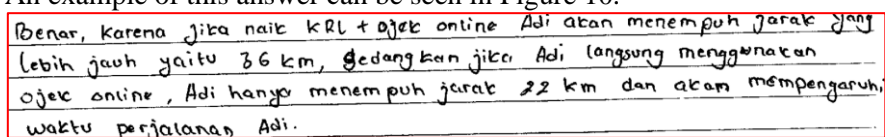 An example of this answer can be seen in Figure 10.
Benar, karena jika naik KRL + ojek online Adi akan menempuh jarak yang
lebih jauh yaitu 36 km, sedangkan jika Adi langsung menggunakan
ojek online, Adi hanya menempuh jarak 22 km dan akan mempengaruhi
waktu perjalanan Adi.